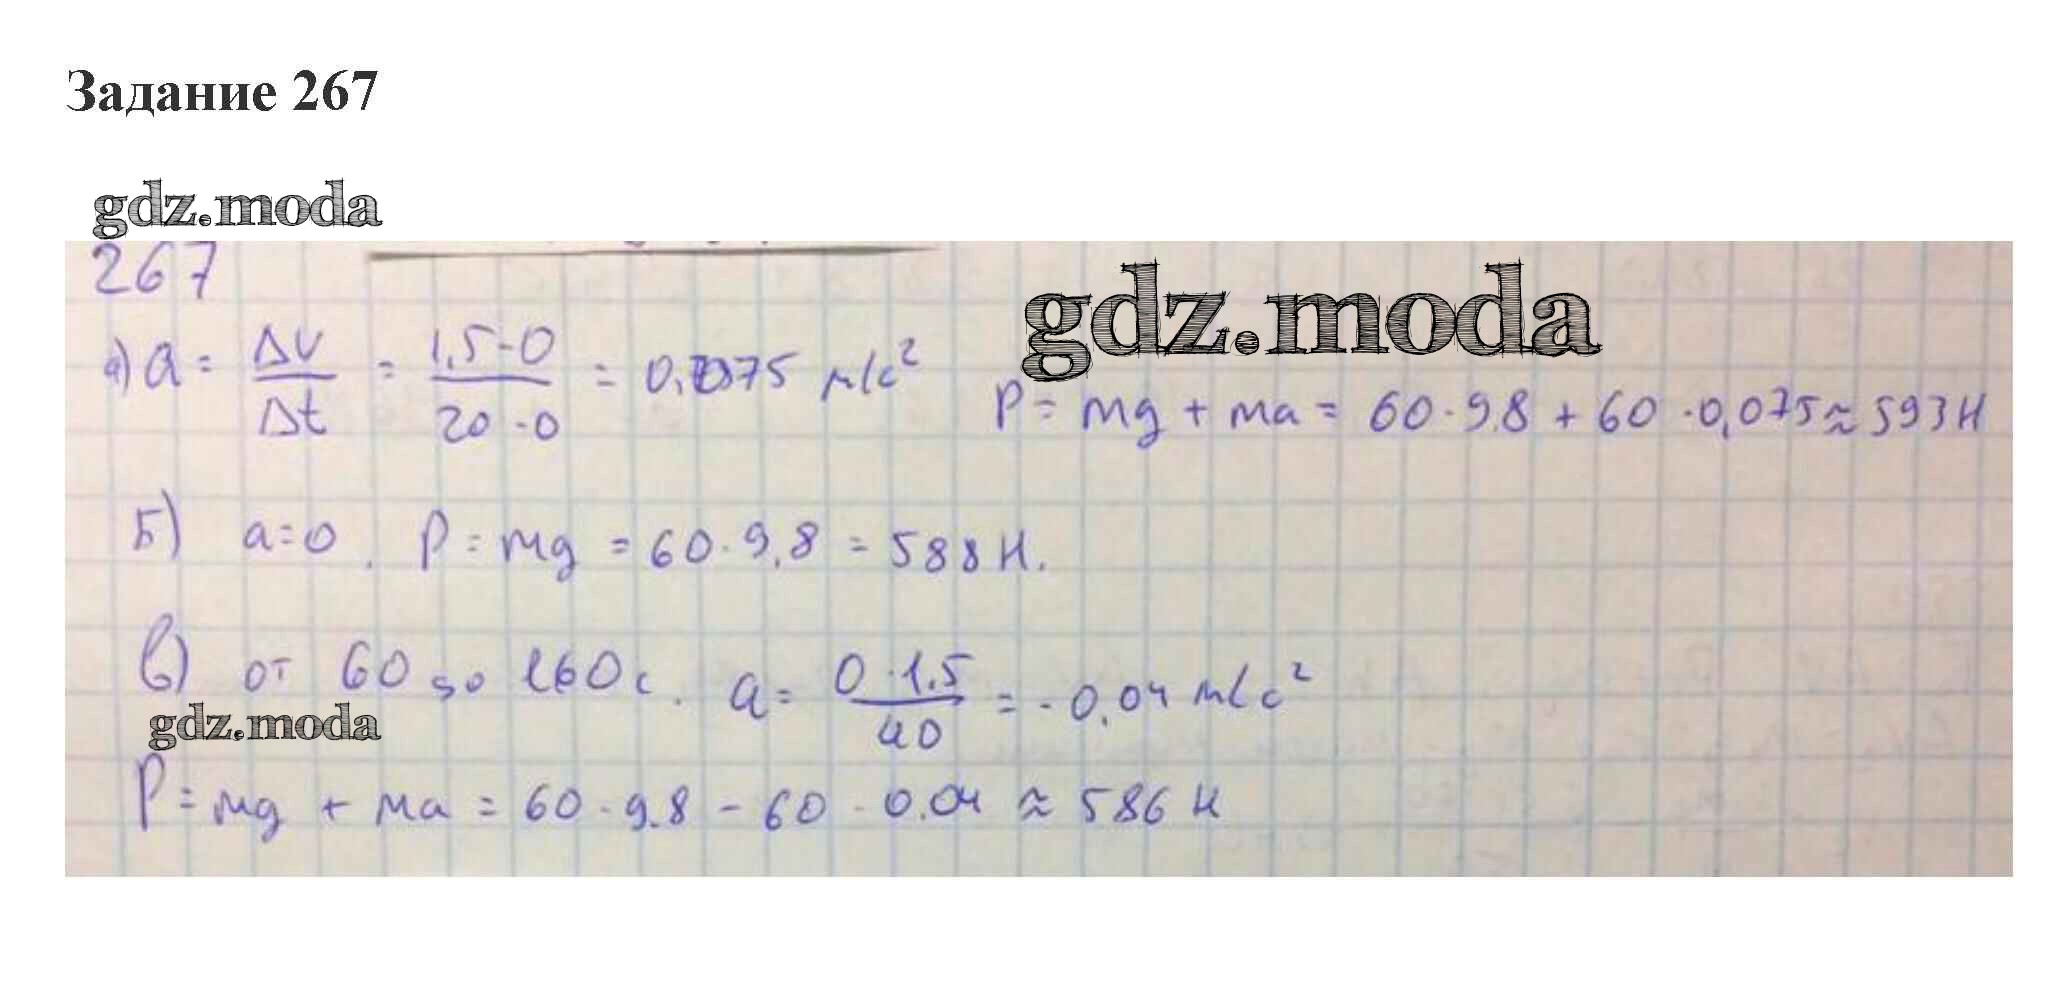 Задание 267
gdz.moda
267
gdz.moda
а) a = Δv/Δt = 1,5-0/20-0 = 0,075 м/с²
P = mg + ma = 60·9,8 + 60·0,075 ≈ 593 Н
Б) a=0. P = mg = 60·9,8 = 588 Н.
в) от 60 до 160 с. a = 0-1,5/40 = -0,04 м/с²
gdz.moda
P = mg + ma = 60·9.8 - 60·0.04 ≈ 586 Н